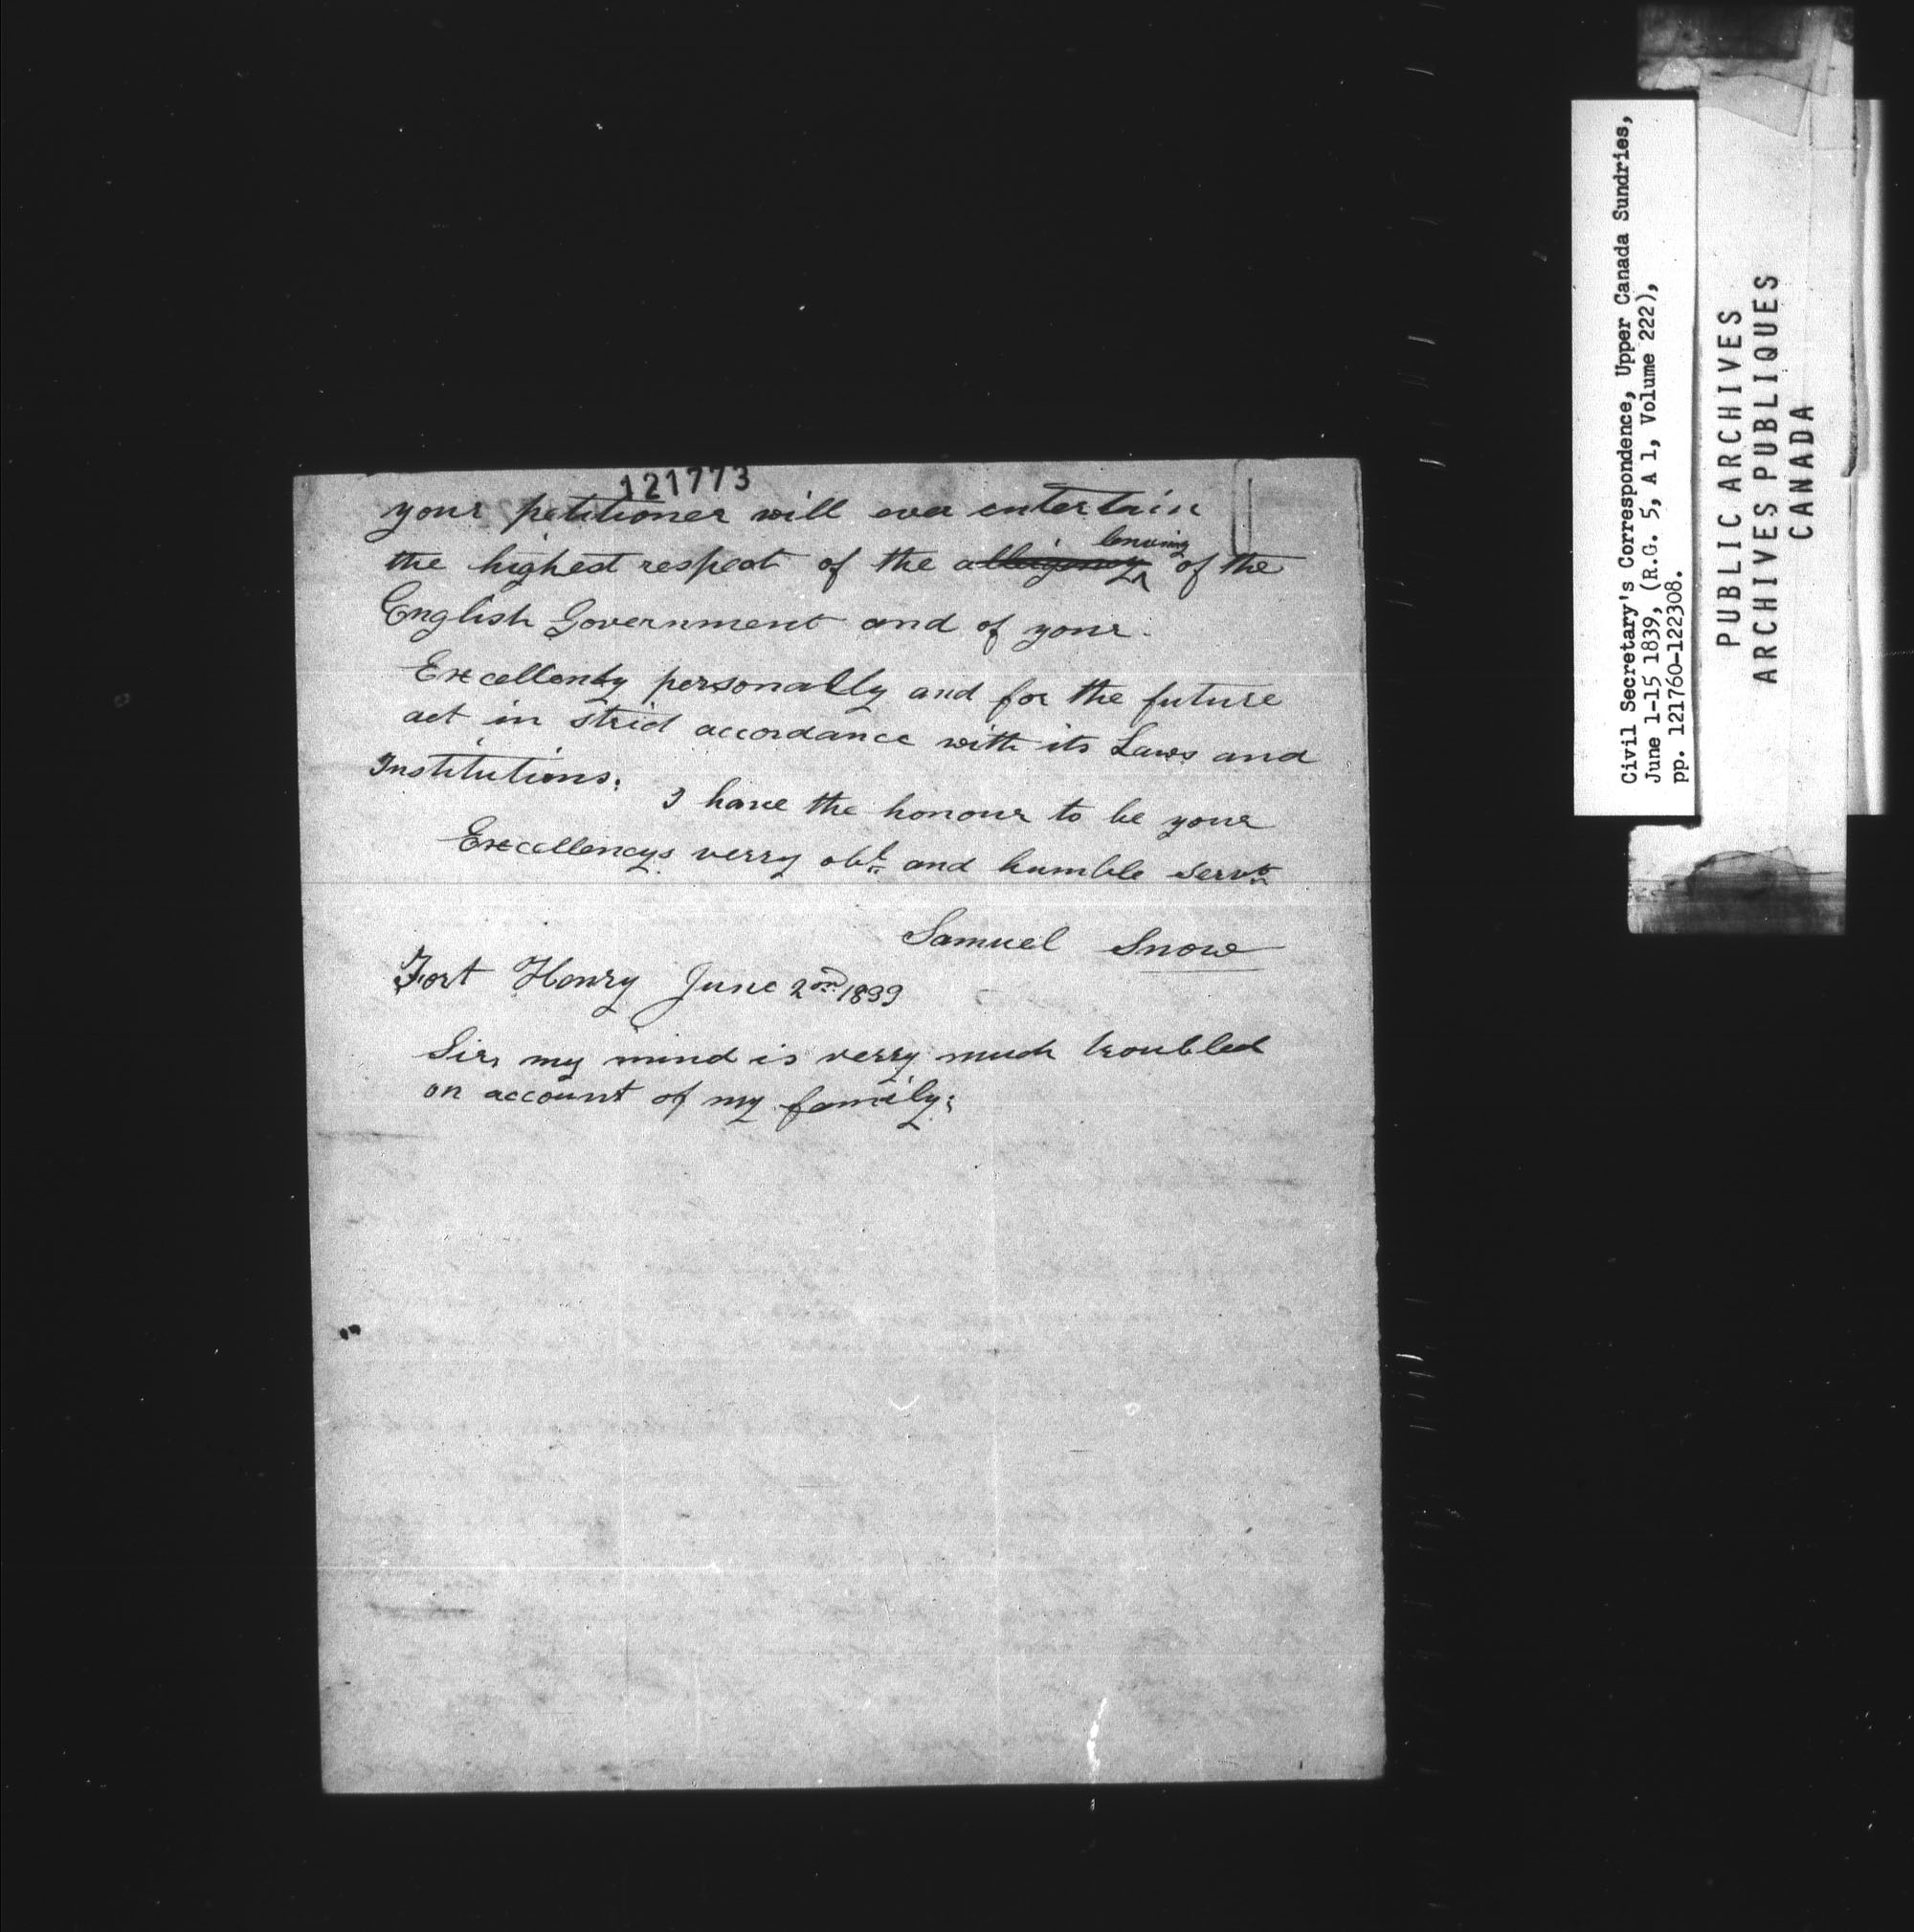 121773
your petitioner will ever entertain
lenaing
the highest respect of the of the
English Government and of your
Excellency personally and for the future
act in strict accordance with its Laws and
Institutions.
I have the honour to be your
Excellencys verry obt and humble servt
Samuel Snow
Fort Henry June 2nd 1839
Sir, my mind is verry much troubled
on account of my family;
Civil Secretary's Correspondence, Upper Canada Sundries,
June 1-15 1839, (R.G. 5, A 1, Volume 222),
pp. 121760-122308.
PUBLIC ARCHIVES
ARCHIVES PUBLIQUES
CANADA